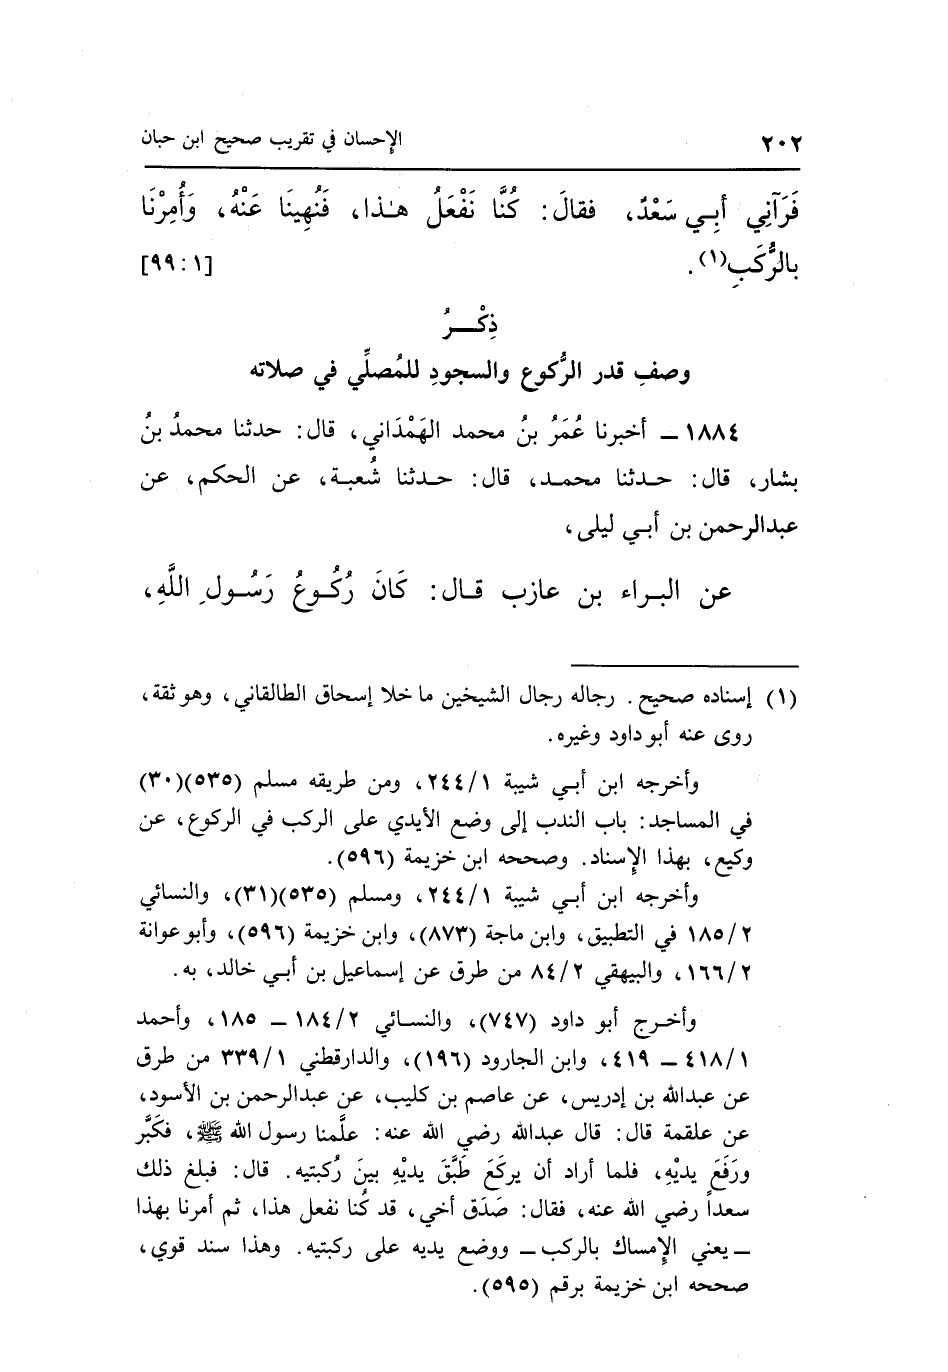 ٢٠٢ الإحسان في تقريب صحيح ابن حبان
فَرَآنِي أبِي سَعْدٌ، فقالَ: كُنَّا نَفْعَلُ هٰذا، فَنُهِينَا عَنْهُ، وَأُمِرْنَا
بالرُّكَبِ(١). [٩٩:١]
ذِكْرُ
وصفِ قدر الرُّكوعِ والسجودِ للمُصلِّي في صلاته
١٨٨٤ ــ أخبرنا عُمَرُ بنُ محمد الهَمْدَاني، قال: حدثنا محمدُ بنُ
بشار، قال: حدثنا محمد، قال: حدثنا شُعبة، عن الحكم، عن
عبدالرحمن بن أبي ليلى،
عن البراء بن عازب قال: كَانَ رُكُوعُ رَسُولِ اللَّهِ،
(١) إسناده صحيح. رجاله رجال الشيخين ما خلا إسحاق الطالقاني، وهو ثقة،
روى عنه أبو داود وغيره.
وأخرجه ابن أبي شيبة ٢٤٤/١، ومن طريقه مسلم (٥٣٥)(٣٠)
في المساجد: باب الندب إلى وضع الأيدي على الركب في الركوع، عن
وكيع، بهذا الإسناد. وصححه ابن خزيمة (٥٩٦).
وأخرجه ابن أبي شيبة ٢٤٤/١، ومسلم (٥٣٥)(٣١)، والنسائي
١٨٥/٢ في التطبيق، وابن ماجة (٨٧٣)، وابن خزيمة (٥٩٦)، وأبو عوانة
١٦٦/٢، والبيهقي ٨٤/٢ من طرق عن إسماعيل بن أبي خالد، به.
وأخرج أبو داود (٧٤٧)، والنسائي ١٨٤/٢ ــ ١٨٥، وأحمد
٤١٨/١ ــ ٤١٩، وابن الجارود (١٩٦)، والدارقطني ٣٣٩/١ من طرق
عن عبدالله بن إدريس، عن عاصم بن كليب، عن عبدالرحمن بن الأسود،
عن علقمة قال: قال عبدالله رضي الله عنه: علَّمنا رسول الله ﷺ، فكَبَّر
ورَفَعَ يديْهِ، فلما أراد أن يركَعَ طَبَّقَ يديْهِ بينَ رُكبتيه. قال: فبلغ ذلك
سعداً رضي الله عنه، فقال: صَدَق أخي، قد كُنا نفعل هذا، ثم أمرنا بهذا
ــ يعني الإمساك بالركب ــ ووضع يديه على ركبتيه. وهذا سند قوي،
صححه ابن خزيمة برقم (٥٩٥).